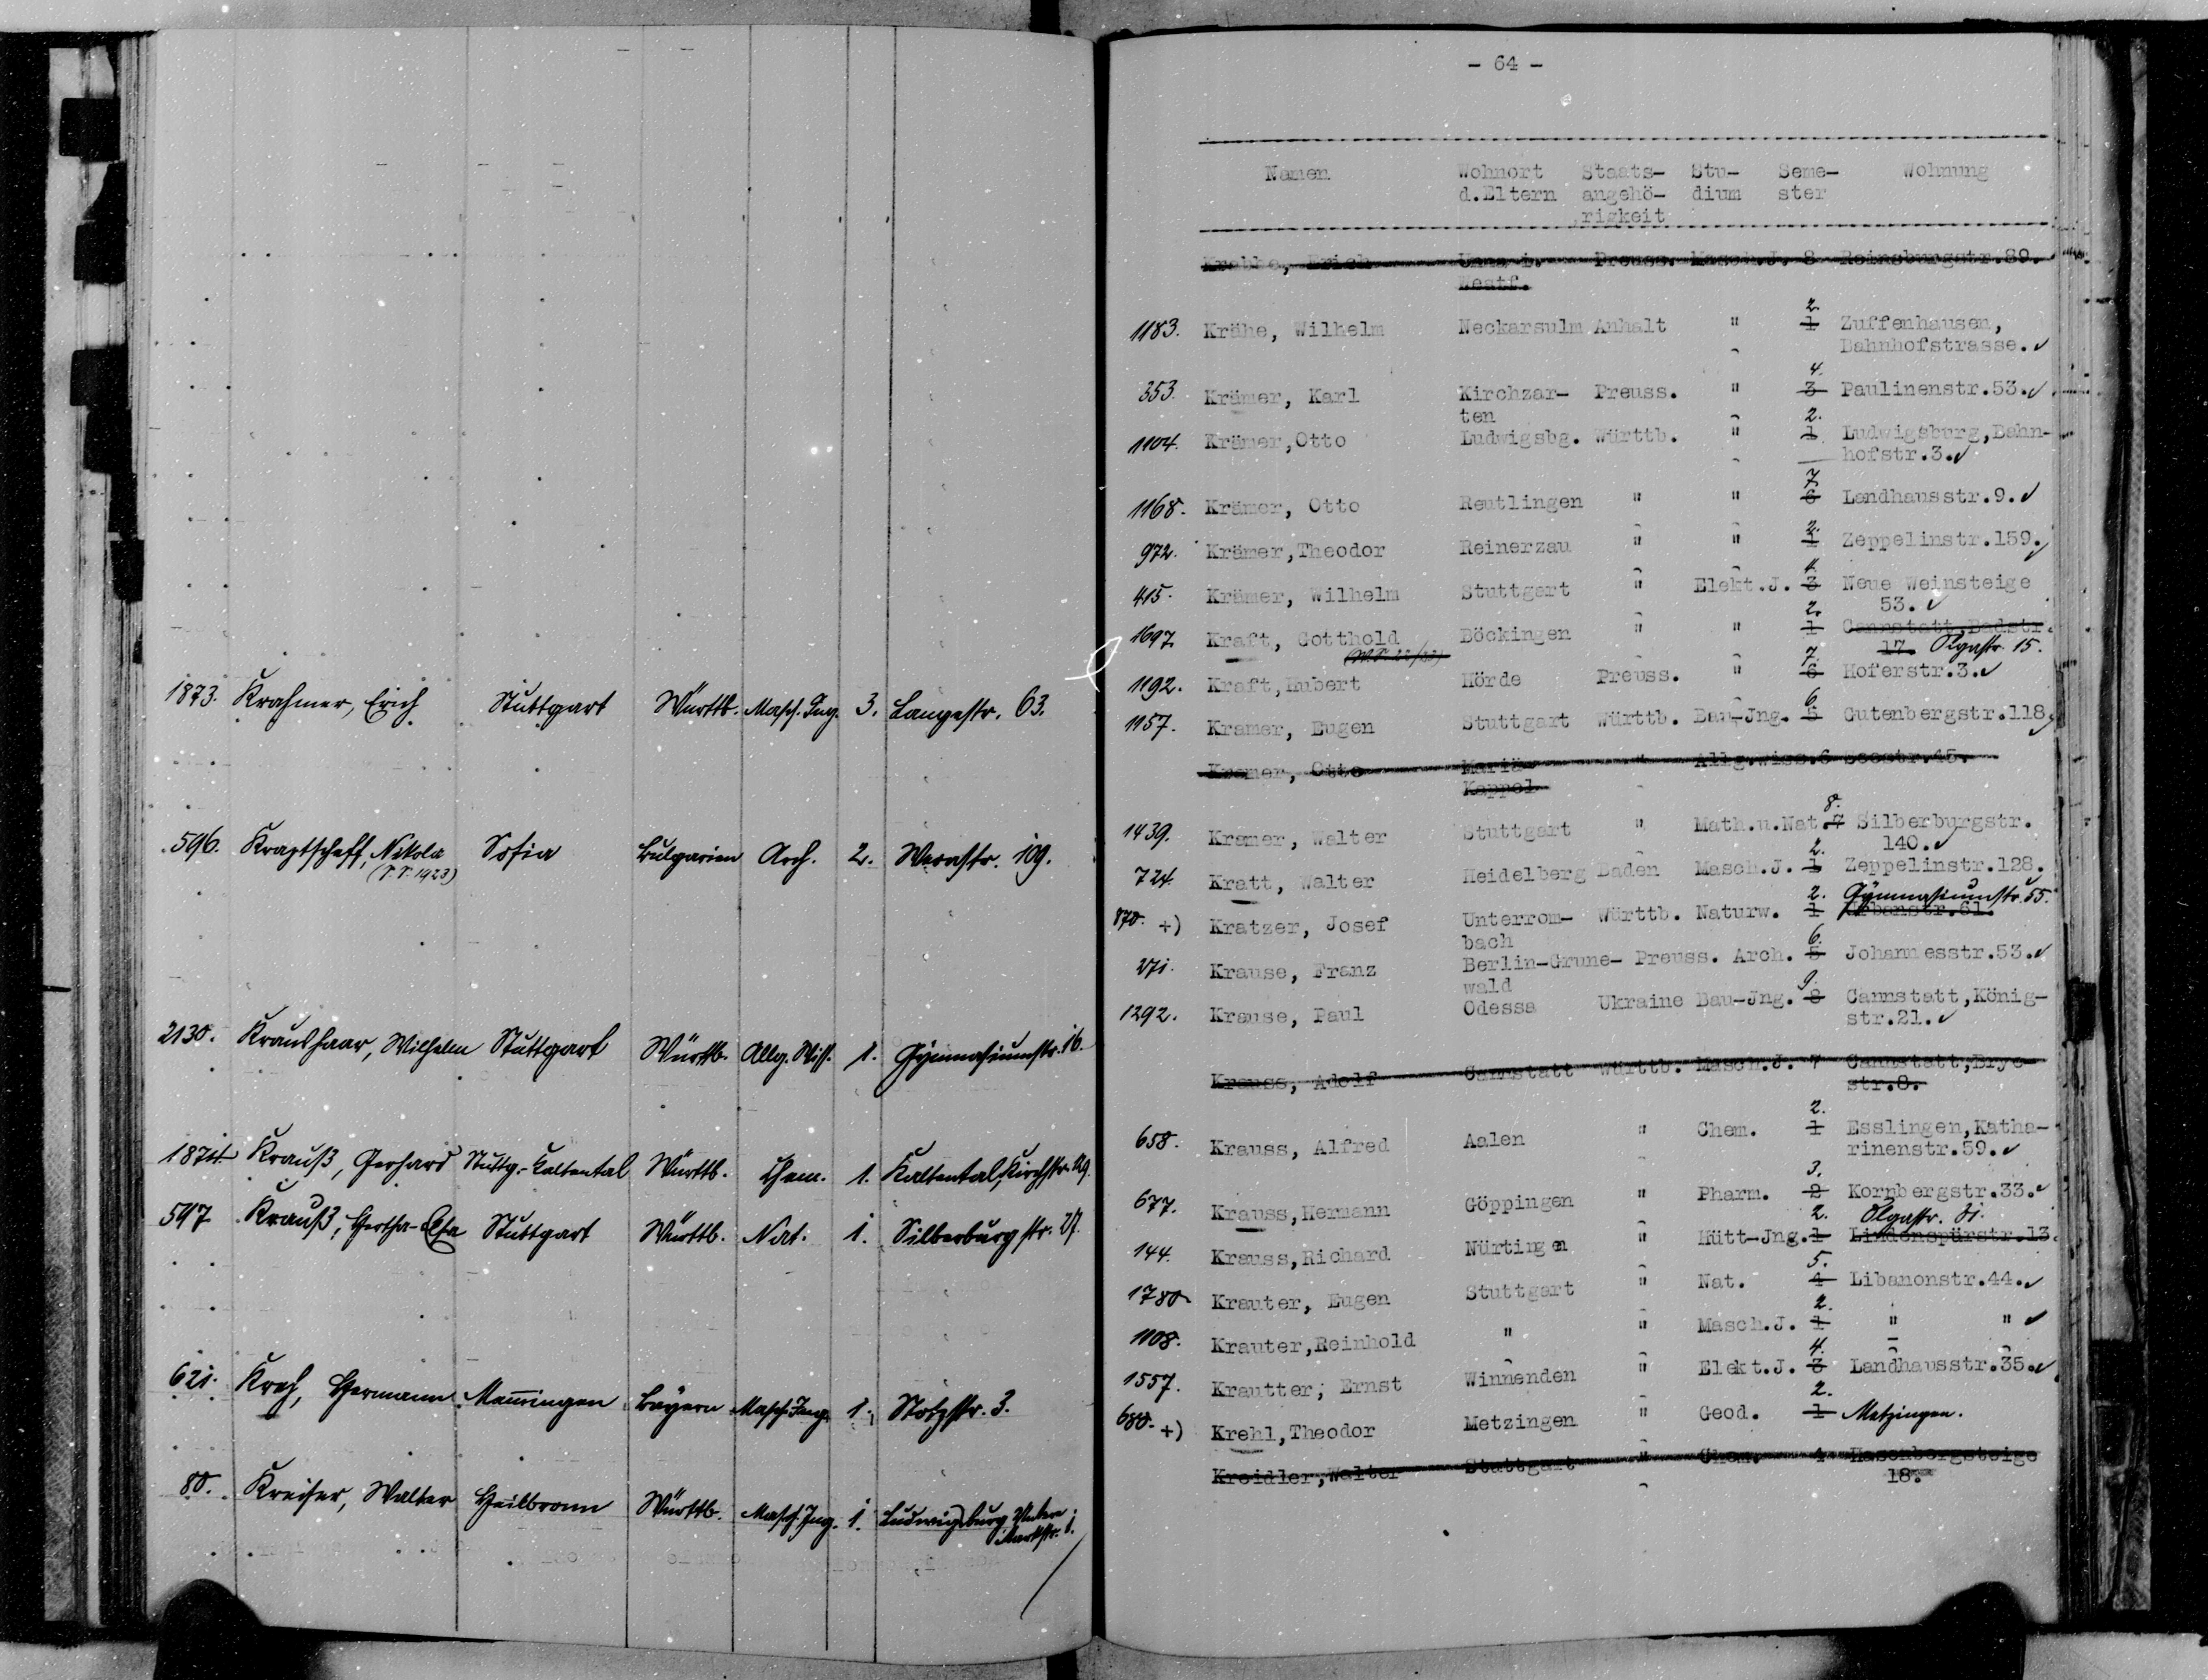 1873. Krahmer, Erich Stuttgart Württb. Masch. Ing. 3. Langestr. 63.
596. Kraptscheff, Nikola Sofia Bulgarien Arch. 2. Werastr. 109.
(S.S. 1923)
2130. Kraushaar, Wilhelm Stuttgart Württb. Allg. Wiss. 1. Gymnasiumstr. 16.
1874. Krauß, Gerhard Stuttg.-Kaltental Württb. Chem. 1. Kaltental, Kirchstr. 29.
597 Krauß, Hertha- Stuttgart Württb. Nat. 1. Silberburgstr. 27.
621. Kreh, Hermann Memmingen Bayern Masch. Ing. 1. Stotzstr. 3.
80. Kreiser, Walter Heilbronn Württb. Masch. Ing. 1. Ludwigsburg Untere
Marktstr. 1.
- 64 -
Namen Wohnort Staats- Stu- Seme- Wohnung
d.Eltern angehö- dium ster
rigkeit
Erich Unna i. Preuss. Masch.J. 8 Reinsburgstr.89.
Westf.
2.
1183. Krähe, Wilhelm Neckarsulm Anhalt " 1 Zuffenhausen,
Bahnhofstrasse.✓
4.
353. Krämer, Karl Kirchzar- Preuss. " 3 Paulinenstr.53.✓
ten 2.
1104. Krämer,Otto Ludwigsbg. Württb. " 1 Ludwigsburg,Bahn-
hofstr.3.✓
7.
1168. Krämer, Otto Reutlingen " " 6 Landhausstr.9.✓
2.
972. Krämer,Theodor Reinerzau " " 1 Zeppelinstr.159.✓
4.
415. Krämer, Wilhelm Stuttgart " Elekt.J. 3 Neue Weinsteige
2. 53.✓
1697. Kraft, Gotthold Böckingen " " 1 Cannstatt,Badstr.
(W.S. 22/23) 17. Olgastr. 15.
7.
1192. Kraft,Hubert Hörde Preuss. " 6 Hoferstr.3.✓
6.
1157. Kramer, Eugen Stuttgart Württb. Bau-Jng. 5 Gutenbergstr.118.✓
Kramer, Otto Mariä- " Allg.Wiss.6 Seestr.45.
Kappel
8.
1439. Kramer, Walter Stuttgart " Math.u.Nat.7 Silberburgstr.
2. 140.✓
724. Kratt, Walter Heidelberg Baden Masch.J. 1 Zeppelinstr.128.
2. Gymnasiumstr. 55.
870. +) Kratzer, Josef Unterrom- Württb. Naturw. 1 Urbanstr.61.
bach 6.
271. Krause, Franz Berlin-Grune- Preuss. Arch. 5 Johannesstr.53.✓
wald 9.
1292. Krause, Paul Odessa Ukraine Bau-Jng. 8 Cannstatt,König-
str.21.✓
Krauss, Adolf Cannstatt Württb. Masch.J. 7 Cannstatt,Brye-
str.8.
2.
658. Krauss, Alfred Aalen " Chem. 1 Esslingen,Katha-
rinenstr.59.✓
3.
677. Krauss,Hermann Göppingen " Pharm. 2 Kornbergstr.33.✓
2. Olgastr. 31.
144. Krauss,Richard Nürtingen " Hütt-Jng.1 Lindenspürstr.13.
5.
1780. Krauter, Eugen Stuttgart " Nat. 4 Libanonstr.44.✓
2.
1108. Krauter,Reinhold " " Masch.J. 1 " " ✓
4.
1557. Krautter; Ernst Winnenden " Elekt.J. 3 Landhausstr.35.✓
2.
680. +) Krehl,Theodor Metzingen " Geod. 1 Metzingen.
Kreidler,Walter Stuttgart " Chem. 4 Hasenbergsteige
18.